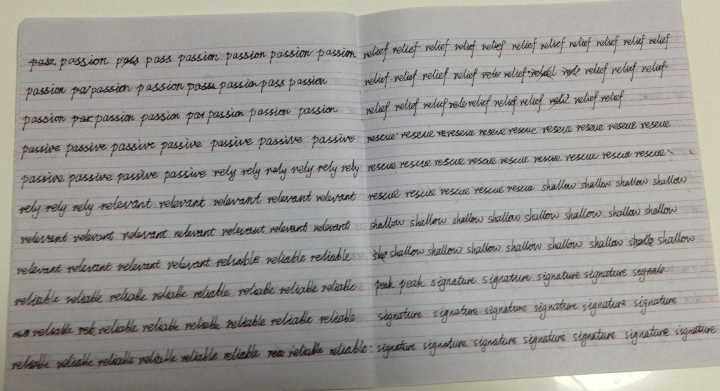 pass passion pass pass passion passion passion passion
passion pa passion passion passion pass passion
passion pas passion passion pas passion passion passion
passive passive passive passive passive passive passive
passive passive passive passive rely rely rely rely rely rely
rely rely rely relevant relevant relevant relevant relevant
relevant relevant relevant relevant relevant relevant relevant
relevant relevant relevant relevant reliable reliable reliable
reliable reliable reliable reliable reliable reliable reliable reliable
reliable reliable reliable reliable reliable reliable reliable reliable
reliable reliable reliable reliable reliable reliable reliable reliable
relief relief relief relief relief relief relief relief relief relief relief
relief relief relief relief relief relief relief relief
relief relief relief relief relief relief relief relief
rescue rescue rescue rescue rescue rescue rescue rescue rescue
rescue rescue rescue rescue rescue rescue rescue rescue rescue
rescue rescue rescue rescue rescue shallow shallow shallow shallow
shallow shallow shallow shallow shallow shallow shallow shallow
shallow shallow shallow shallow shallow shallow shallow
peak peak signature signature signature signature
signature signature signature signature signature signature
signature signature signature signature signature signature signature